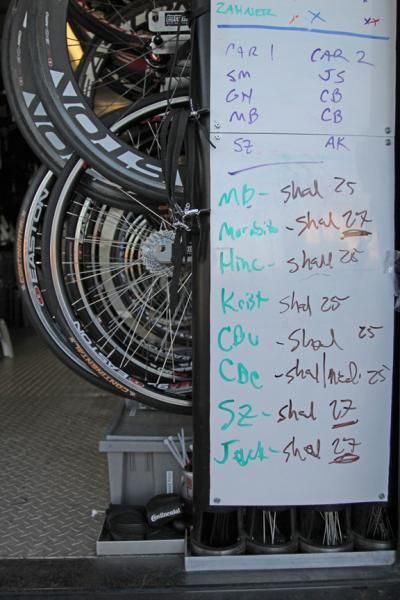 ZAHNER X XX
CAR 1 CAR 2
SM JS
GH CB
MB CB
SZ AK
MB - shal 25
Morabito - shal 27
Hinc - shall 25
Krist shal 25
CBu - Shal 25
CBe - shal/medi 25
SZ - shal 27
Jack - shal 27
EASTON
EASTON
CONTINENTAL
Continental